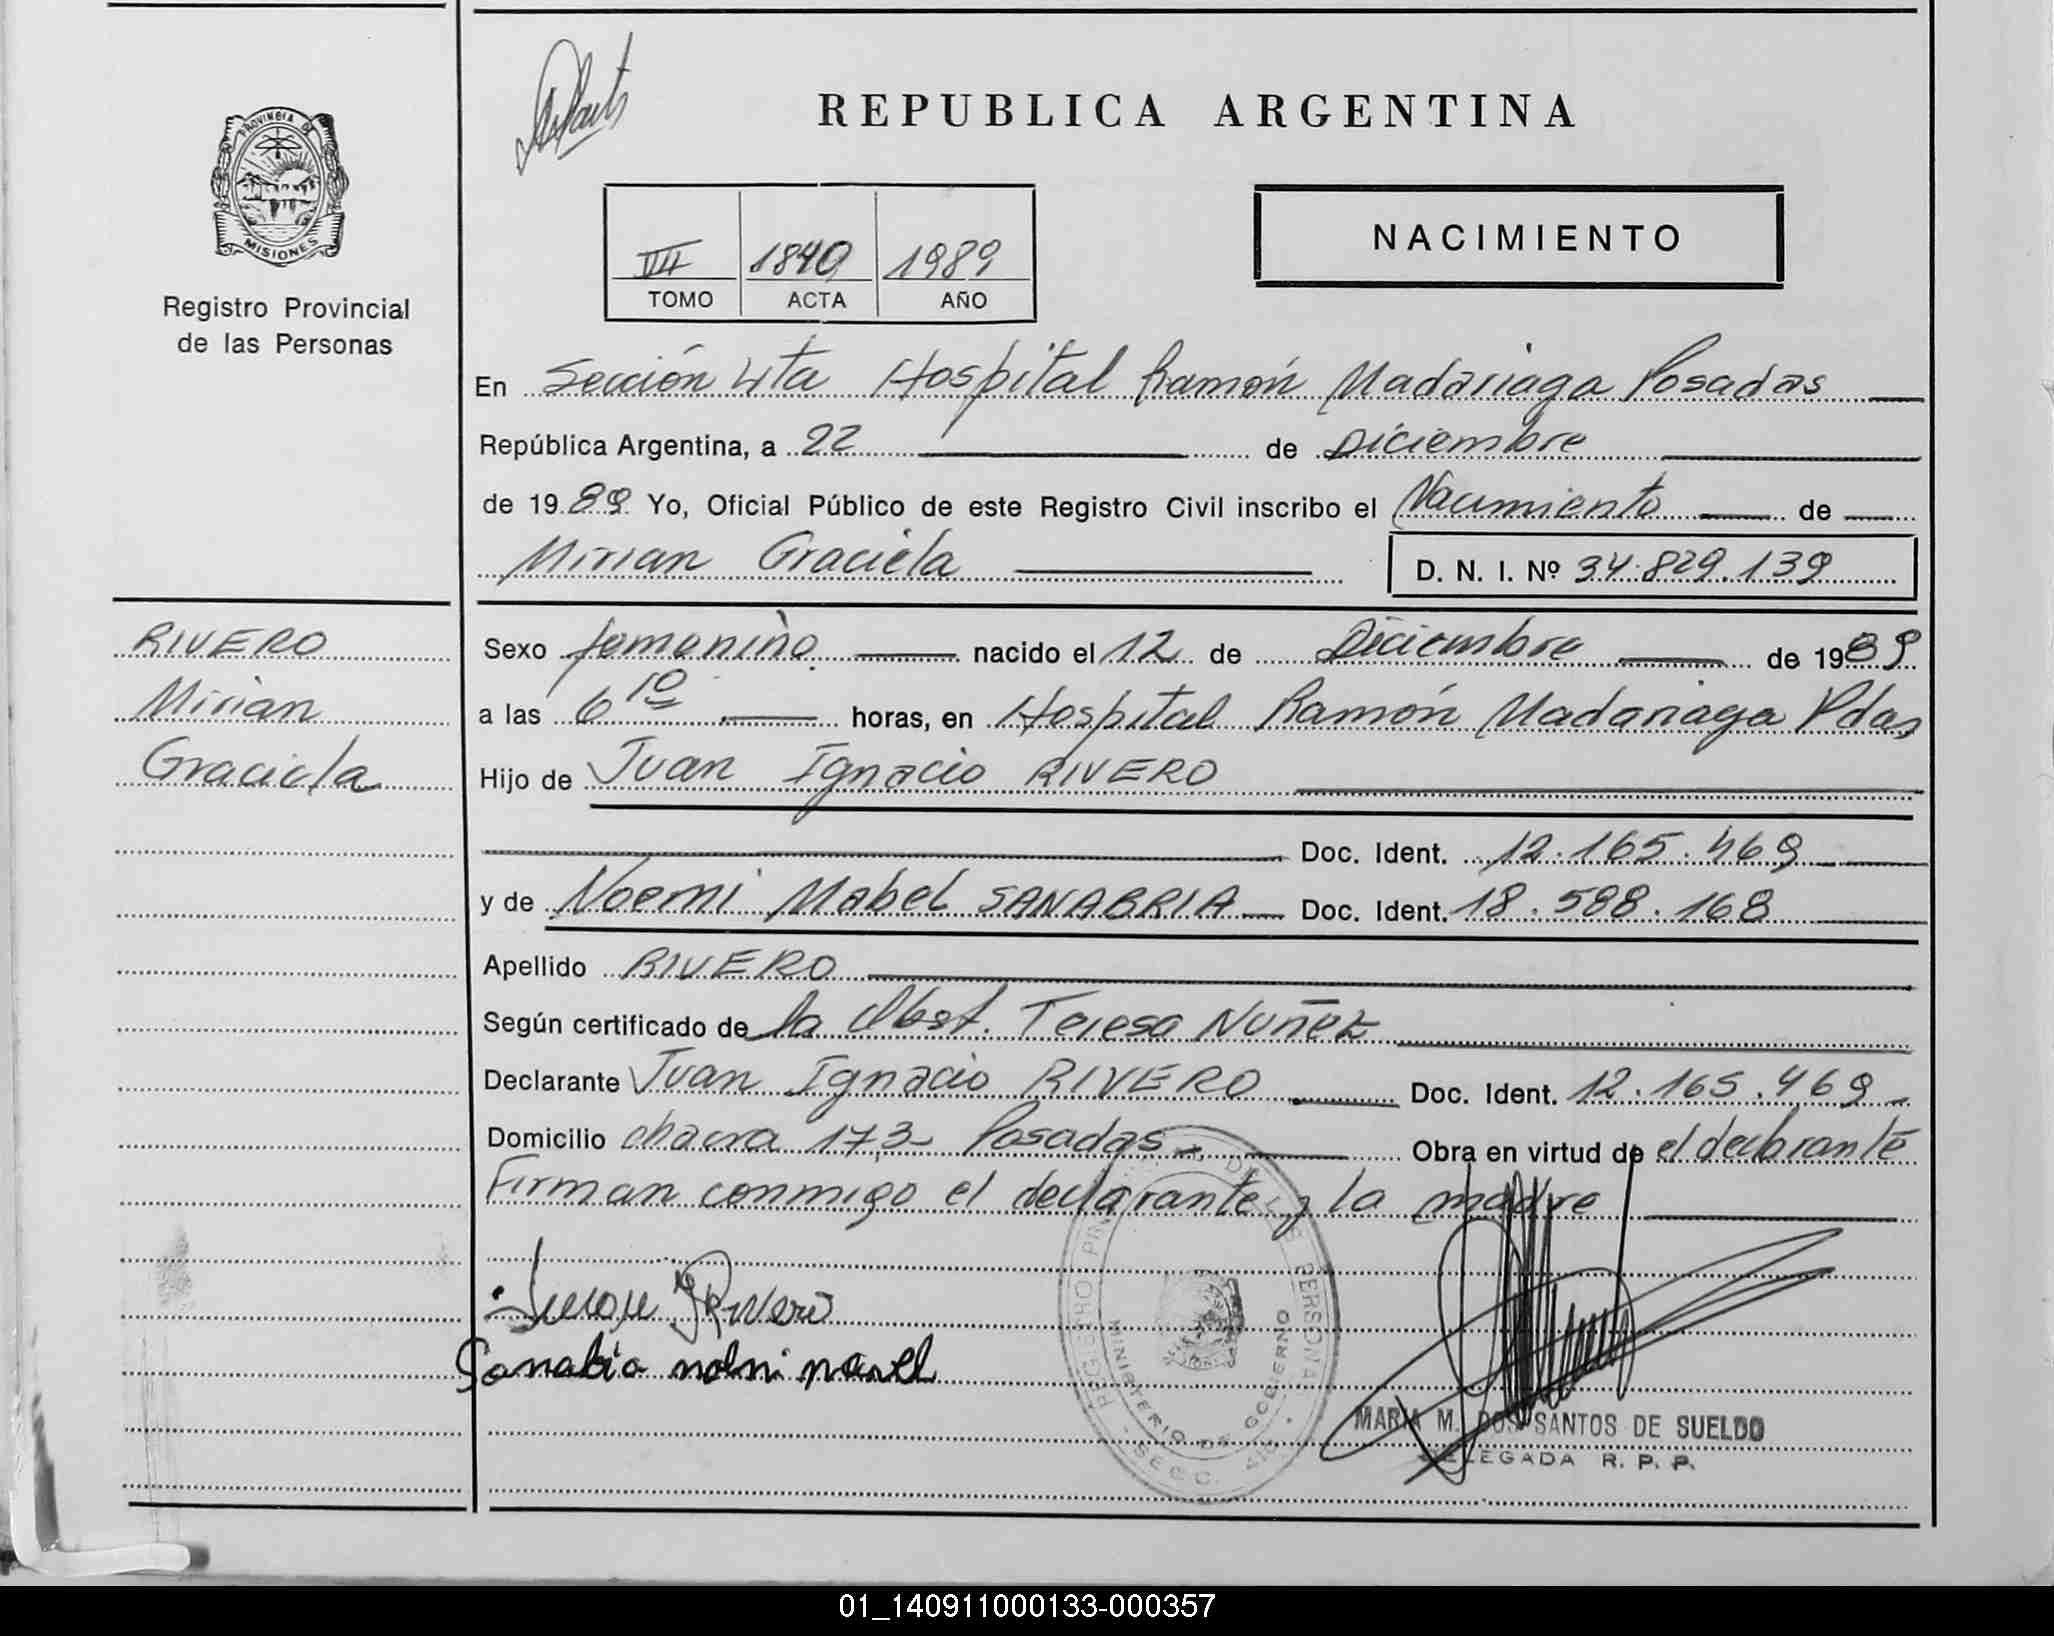 REPUBLICA ARGENTINA
PROVINCIA DE
MISIONES
Registro Provincial
de las Personas
VII 1840 1989
TOMO ACTA AÑO
NACIMIENTO
En Sección 4ta Hospital Ramón Madariaga Posadas
República Argentina, a 22 de Diciembre
de 1989 Yo, Oficial Público de este Registro Civil inscribo el Nacimiento de
Mirian Graciela D. N. I. Nº 34.829.139
RIVERO
Mirian
Graciela
Sexo femenino nacido el 12 de Diciembre de 1989
a las 6 10 horas, en Hospital Ramón Madariaga Pdas,
Hijo de Juan Ignacio RIVERO
Doc. Ident. 12.165.469
y de Noemi Mabel SANABRIA Doc. Ident. 18.588.168
Apellido RIVERO
Según certificado de la Obst. Teresa Nuñez
Declarante Juan Ignacio RIVERO Doc. Ident. 12.165.469
Domicilio chacra 173 - Posadas - Obra en virtud de el declarante
Firman conmigo el declarante y la madre
Rivero
REGISTRO DE LAS PERSONAS
MINISTERIO DE GOBIERNO
SECC. 4ta.
MARIA M. DOS SANTOS DE SUELDO
DELEGADA R. P. P.
01_140911000133-000357